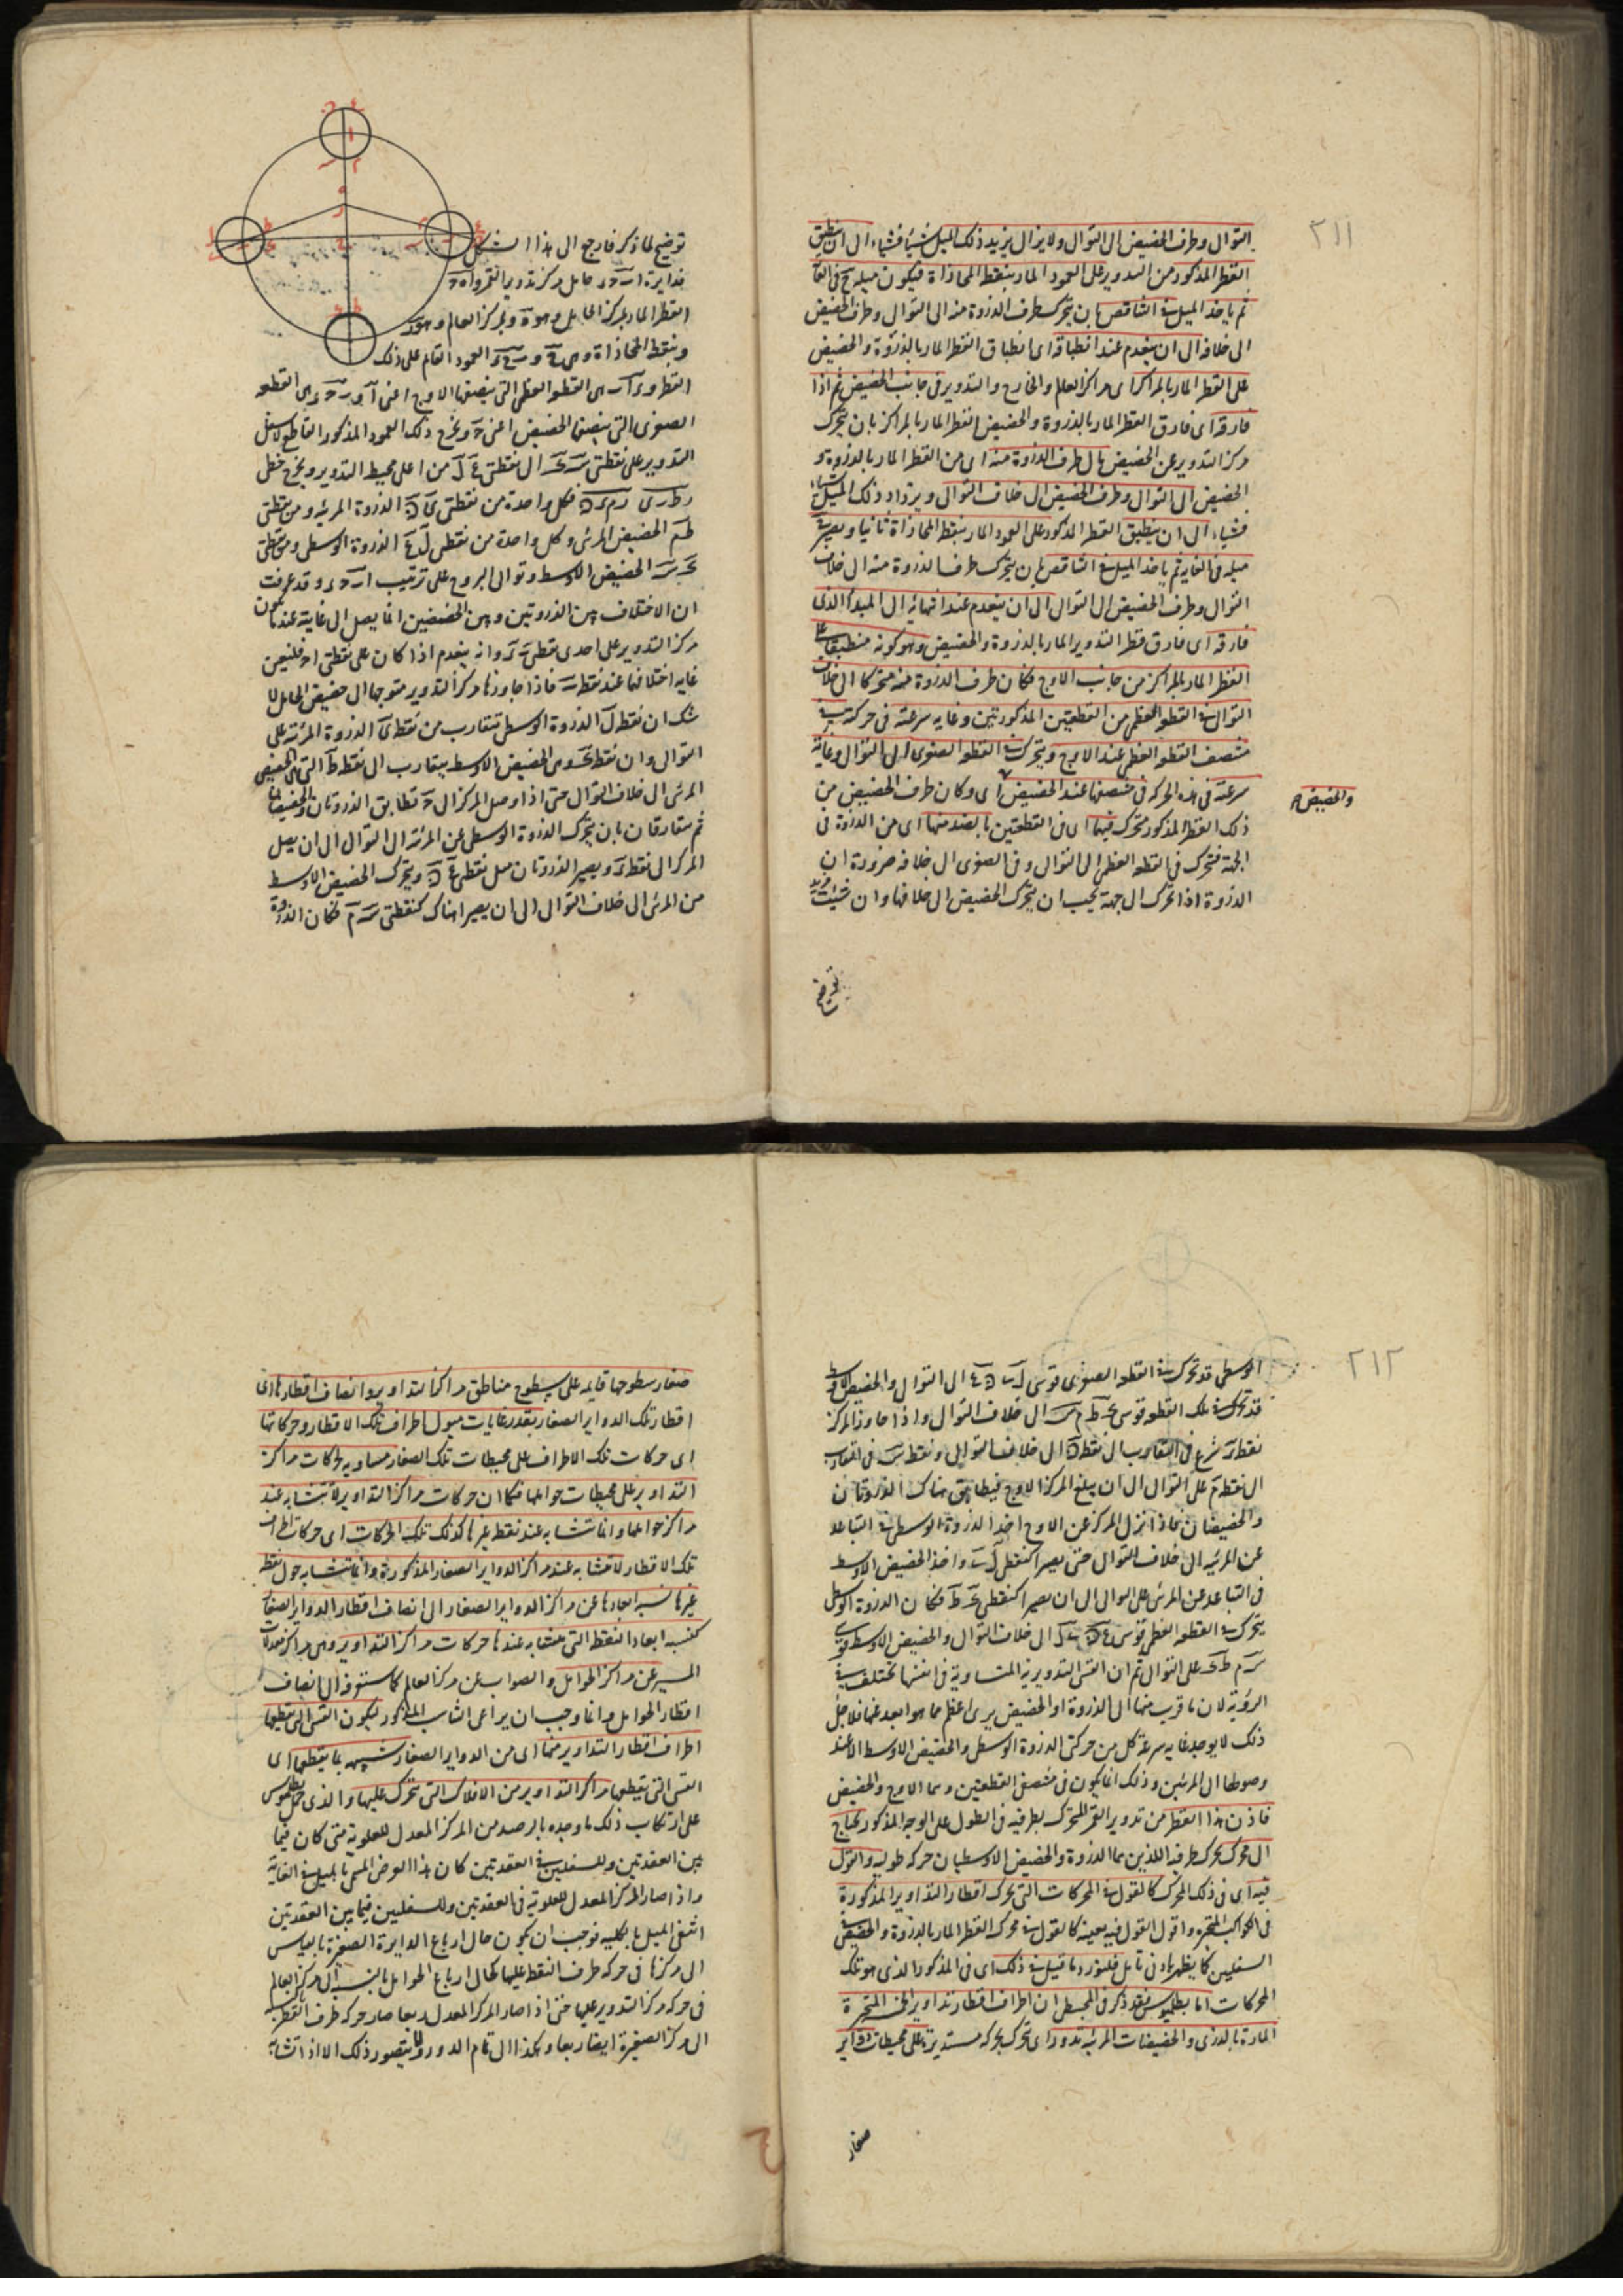 ٢١١
التوال وطرف الحضيض الى التوال ولا يزال يزيد ذلك الميل شيئا فشيئا الى ان ينطبق
القطر المذكور من التدوير على العمود المار بنقطة المحاذاة فيكون ميله ح في الغا
ثم ياخذ الميل في التناقص بان يتحرك طرف الذروة منه الى التوال وطرف الحضيض
الى خلافه الى ان ينعدم عند انطباقه اى انطباق القطر المار بالذروة والحضيض
على القطر المار بالمراكز اى مراكز العالم والخارج والتدوير في جانب الحضيض ثم اذا
فارقه اى فارق القطر المار بالذروة والحضيض القطر المار بالمراكز بان يتحرك
مركز التدوير عن الحضيض مال طرف الذروة منه اى من القطر المار بالذروة و
الحضيض الى التوال وطرف الحضيض الى خلاف التوال ويزداد ذلك الميل شيئا
فشيئا الى ان ينطبق القطر المذكور على العمود المار بنقطة المحاذاة ثانيا ويصير
ميله في الغاية ثم ياخذ الميل في التناقص بان يتحرك طرف الذروة منه الى خلاف
التوال وطرف الحضيض الى التوال الى ان ينعدم عند انتهائه الى المبدأ الذى
فارقه اى فارق قطر التدوير المار بالذروة والحضيض وهو كونه منطبقا على
القطر المار بالمراكز من جانب الاوج فكان طرف الذروة منه متحركا الى خلاف
التوال في القطعة العظمى من القطعتين المذكورتين وغاية سرعته في حركته في
منتصف القطعة العظمى عند الاوج ويتحرك في القطعة الصغرى الى التوال وغاية
سرعته في هذه الحركة في منتصفها عند الحضيض اى وكان طرف الحضيض من
والحضيض
ذلك القطر المذكور متحرك فيهما اى في القطعتين بالضد منها اى من الذروة في
الجهة فيتحرك في القطعة العظمى الى التوال وفي الصغرى الى خلافه ضرورة ان
الذروة اذا تحرك الى جهة يجب ان يتحرك الحضيض الى خلافها وان شئت مزيد
توضيح لما ذكر فارجع الى هذا الشكل
فدايرة ا ب ح د حامل مركز تدوير القمر و ا ه ح
القطر المار بمركز الحامل وهو ه وبمركز العالم وهو
وبنقطة المحاذاة وهى العمود القائم على ذلك
القطر وهى القطعة العظمى التى ينصفها الاوج اعنى وهى القطعة
الصغرى التى ينصفها الحضيض اعنى ح ونخرج ذلك العمود المذكور القاطع لاسفل
التدوير على نقطتى الى نقطتى من اعلى محيط التدوير ونخرج خطى
فكل واحدة من نقطتى الذروة المرئية ومن نقطتى
ط م الحضيض المرئى وكل واحدة من نقطتى ل ع الذروة الوسطى ومن نقطتى
الحضيض الاوسط وتوالى البروج على ترتيب ا ب ح د وقد عرفت
ان الاختلاف بين الذروتين وبين الحضيضين انما يصل الى غايته عند كون
مركز التدوير على احدى نقطتى وانه ينعدم اذا كان على نقطتى ا ح فليعين
غاية اختلافها عند نقطة ب فاذا جاوزها مركز التدوير متوجها الى حضيض الحامل لا
شك ان نقطة ل الذروة الوسطى تتقارب من نقطة ى الذروة المرئية على
التوال وان نقطة وهى الحضيض الاوسط يتقارب الى نقطة ط التى هى الحضيض
المرئى الى خلاف التوال حتى اذا وصل المركز الى ح تطابق الذروتان والحضيضان
ثم يتفارقان بان يتحرك الذروة الوسطى عن المرئية الى التوال الى ان يصل
المركز الى نقطة د ويصير الذروتان مثل نقطتى ويتحرك الحضيض الاوسط
من المرئى الى خلاف التوال الى ان يصير هناك كنقطتى فكان الذروة
٢١٢
الوسطى قد تحرك في القطعة الصغرى قوسى الى التوال والحضيض الاوسط
قد تحرك في تلك القطعة قوسى الى خلاف التوال واذا جاوز المركز
نقطة د شرع في التقارب الى نقطة الى خلاف التوالى ونقطة في التقارب
الى نقطة م على التوال الى ان يبلغ المركز الاوج فيطابق هناك الذروتان
والحضيضان فاذا نزل المركز عن الاوج اخذ الذروة الوسطى في التباعد
عن المرئية الى خلاف التوال حتى يصير كنقطتى واخذ الحضيض الاوسط
في التباعد عن المرئى على التوالى الى ان يصير كنقطتى فكان الذروة الوسطى
يتحرك في القطعة العظمى قوسى الى خلاف التوال والحضيض الاوسط قوسى
على التوال ثم ان القسى التدويرية المتساوية في انفسها مختلفة في
الرؤية لان ما قرب منها الى الذروة او الحضيض يرى اعظم مما هو ابعد عنها فلاجل
ذلك لا يوجد غاية سرعة كل من حركتى الذروة الوسطى والحضيض الاوسط الا عند
وصولها الى المرئيين وذلك انما يكون في منتصفى القطعتين وهما الاوج والحضيض
فاذن هذا القطر من تدوير القمر المتحرك بطرفيه في الطول على الوجه المذكور يحتاج
الى محرك يحرك طرفيه اللذين هما الذروة والحضيض الاوسطيان حركة طولية والقول
فيه اى في ذلك المحرك كالقول في المحركات التى يحرك اقطار التداوير المذكورة
في الكواكب المتحيرة واقول القول فيه بعينه كالقول في محرك القطر المار بالذروة والحضيض في
السفليين كما يظهر بادنى تامل فلنورد ما قيل في ذلك اى في المذكور الذى هو تلك
المحركات اما بطليموس فقد ذكر في المجسطى ان اطراف اقطار تداوير الخمسة المتحيرة
المارة بالذرى والحضيضات المرئية تدور اى تتحرك حركة مستديرة على محيطات دواير
صغار
صغار سطوحها قائمة على سطوح مناطق مراكز التداوير وانصاف اقطارها اى
اقطار تلك الدواير الصغار بقدر غايات ميول اطراف تلك الاقطار وحركاتها
اى حركات تلك الاطراف على محيطات تلك الصغار مساوية لحركات مراكز
التداوير على محيطات حواملها فكما ان حركات مراكز التداوير لا تتشابه عند
مراكز حواملها وانما تتشابه عند نقطة غيرها كذلك تلك الحركات اى حركات اطراف
تلك الاقطار لا تتشابه عند مراكز الدواير الصغار المذكورة وانما تتشابه حول نقطة
غيرها نسبة ابعادها عن مراكز الدواير الصغار الى انصاف اقطار الدواير الصغار
كنسبة ابعاد النقطة التى يتشابه عندها حركات مراكز التداوير وهى مراكز معدلات
المسير عن مراكز الحوامل والصواب عن مركز العالم كما ستعرفه الى انصاف
اقطار الحوامل وانما وجب ان يراعى التناسب المذكور ليكون القسى التى يقطعها
اطراف اقطار التداوير منها اى من الدواير الصغار شبيهة بما يقطعها اى
القسى التى يقطعها مراكز التداوير من الافلاك التى تتحرك عليها والذى حمل بطلميوس
على ارتكاب ذلك ما وجده بالرصد من المركز المعدل للعلوية متى كان فيما
بين العقدتين وللسفليين في العقدتين كان هذا العرض المسمى بالميل في الغاية
واذا صار المركز المعدل للعلوية في العقدتين وللسفليين فيما بين العقدتين
انتفى الميل بالكلية فوجب ان يكون حال ارباع الدايرة الصغيرة بالقياس
الى مركزها في حركة طرف القطر عليها كحال ارباع الحوامل بالنسبة الى مركز العالم
في حركة مركز التدوير عليها حتى اذا صار المركز المعدل ربعا صار حركة طرف القطر بالنسبة
الى مركز الصغيرة ايضا ربعا وهكذا الى تمام الدور ولا يتصور ذلك الا اذا تشابه